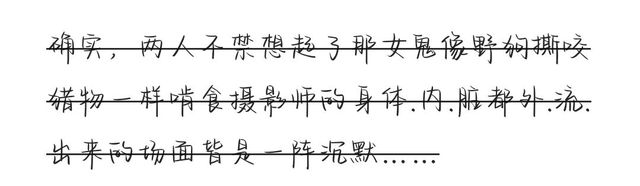 确实，两人不禁想起了那女鬼像野狗撕咬
猎物一样啃食摄影师的身体.内.脏都外.流.
出来的场面皆是一阵沉默……